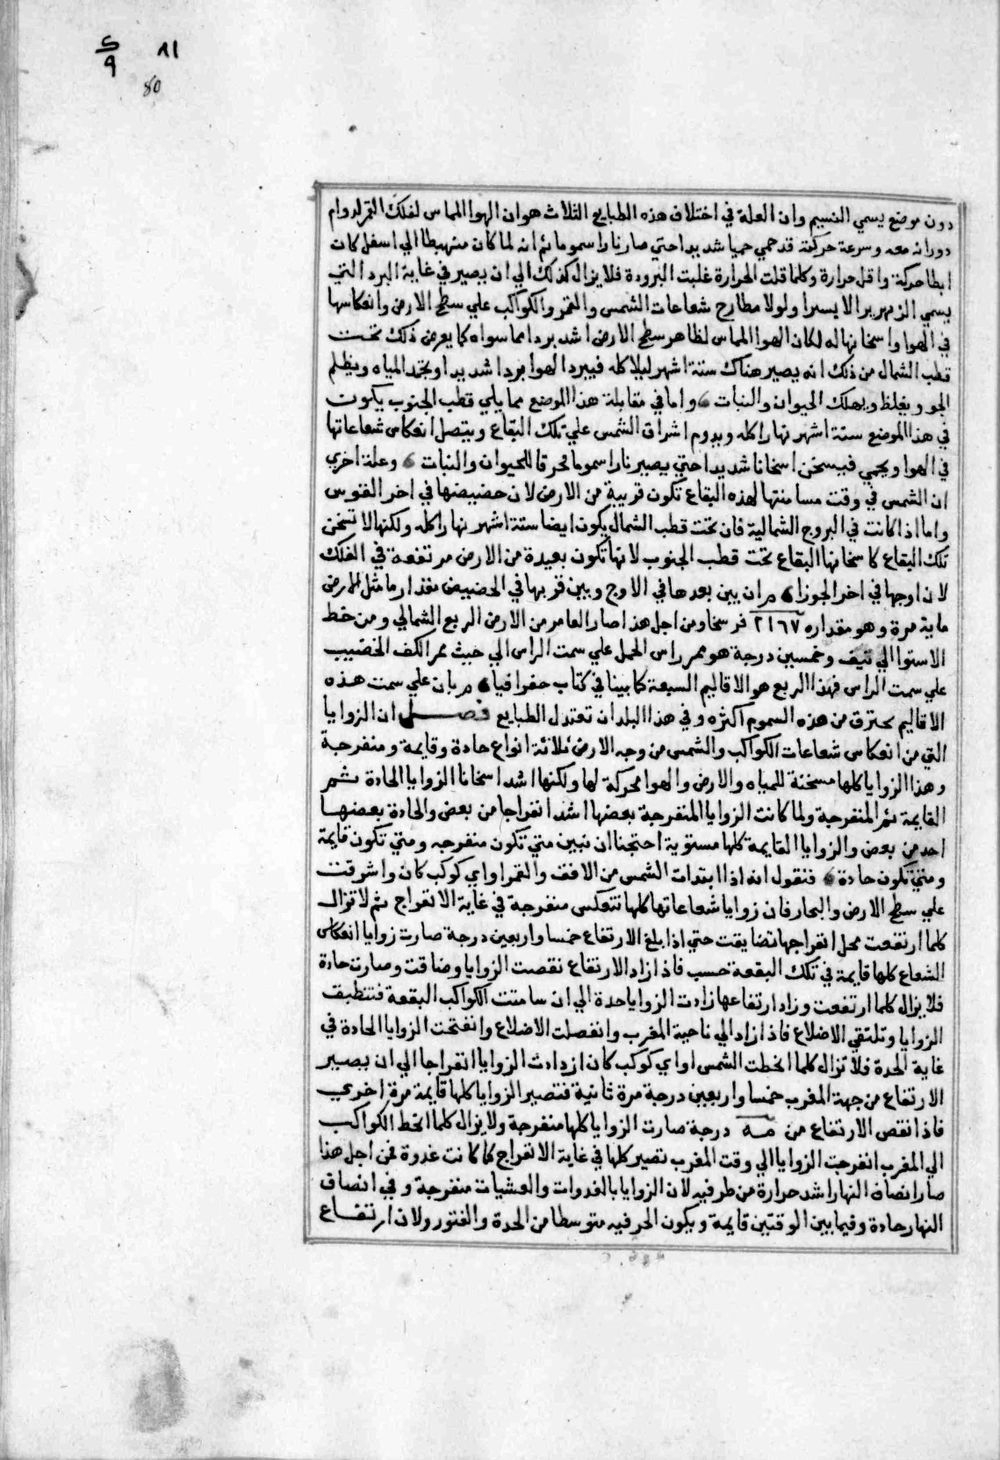 ٨١
٤
٩
80
دون موضع يسمي النسيم وان العلة في اختلاف هذه الطبايع الثلاث هو ان الهوا المماس لفلك القمر لدوام
دورانه معه وسرعة حركته قد حمي حميا شديدا حتي صار نارا سموما ثم انه لما كان منهبطا الي اسفل كان
ابطا حركة واقل حرارة وكلما قلت الحرارة غلبت البرودة فلا يزال كذلك الي ان يصير في غاية البرد التي
يسمي الزمهرير الا يسيرا ولولا مطارح شعاعات الشمس والقمر والكواكب علي سطح الارض وانعكاسها
في الهوا واسخانها له لكان الهوا المماس لظاهر سطح الارض اشد بردا مما سواه كما يعرض ذلك تحت
قطب الشمال من ذلك انه يصير هناك ستة اشهر ليلا كله فيبرد الهوا بردا شديدا وتجمد المياه ويظلم
الجو ويغلظ ويهلك الحيوان والنبات واما في مقابلة هذا الموضع مما يلي قطب الجنوب يكون
في هذا الموضع ستة اشهر نهارا كله ويدوم اشراق الشمس علي تلك البقاع ويتصل انعكاس شعاعاتها
في الهوا ويحمي فيسخن اسخانا شديدا حتي يصير نارا سموما محرقا للحيوان والنبات وعلة اخري
ان الشمس في وقت مسامتتها لهذه البقاع تكون قريبة من الارض لان حضيضها في اخر القوس
واما اذا كانت في البروج الشمالية فان تحت قطب الشمال يكون ايضا ستة اشهر نهارا كله ولكنها لا تسخن
تلك البقاع كاسخانها البقاع تحت قطب الجنوب لانها تكون بعيدة من الارض مرتفعة في الفلك
لان اوجها في اخر الجوزا وان بين بعدها في الاوج وبين قربها في الحضيض مقدار ما مثل الارض
ماية مرة وهو مقداره ٢١٦٧ فرسخا ومن اجل هذا صار العامر من الارض الربع الشمالي ومن خط
الاستوا الي نيف وخمسين درجة هو ممر راس الحمل علي سمت الراس الي حيث ممر الكف الخضيب
علي سمت الراس فهذا الربع هو الاقاليم السبعة كما بينا في كتاب جغرافيا علي سمت هذه
الاقاليم يحترق من هذه السموم اكثره وفي هذا البلدان تعتدل الطبايع فصل ان الزوايا
التي من انعكاس شعاعات الكواكب والشمس من وجه الارض ثلاثة انواع حادة وقايمة ومنفرجة
وهذا الزوايا كلها مسخنة للمياه والارض والهوا محركة لها ولكنها اشد اسخانا الزوايا الحادة ثم
القايمة ثم المنفرجة ولما كانت الزوايا المنفرجة بعضها اشد انفراجا من بعض والحادة بعضها
احد من بعض والزوايا القايمة كلها مستوية احتجنا ان نبين متي تكون منفرجه ومتي تكون قايمة
ومتي تكون حادة فنقول انه اذا ابتدات الشمس من الافق والقمر او اي كوكب كان واشرقت
علي سطح الارض والبحار فان زوايا شعاعاتها كلها تنعكس منفرجة في غاية الانفراج ثم لا تزال
كلما ارتفعت محل انفراجها تضايقت حتي اذا بلغ الارتفاع خمسا واربعين درجة صارت زوايا انعكاس
الشعاع كلها قايمة في تلك البقعة حسب فاذا زاد الارتفاع نقصت الزوايا وضاقت وصارت حادة
فلا يزال كلما ارتفعت وزاد ارتفاعها زادت الزوايا حدة الي ان سامتت الكواكب البقعة فتنطبق
الزوايا وتلتقي الاضلاع فاذا زاد الي ناحية المغرب وانفصلت الاضلاع وانفتحت الزوايا الحادة في
غاية الحدة فلا تزال كلما انحطت الشمس او اي كوكب كان ازدادت الزوايا انفراجا الي ان يصير
الارتفاع من جهة المغرب خمسا واربعين درجة مرة ثانية فتصير الزوايا كلها قايمة مرة اخري
فاذا نقص الارتفاع من مه درجة صارت الزوايا كلها منفرجة ولا يزال كلما انحط الكواكب
الي المغرب انفرجت الزوايا الي وقت المغرب تصير كلها في غاية الانفراج كما كانت غدوة فمن اجل هذا
صار انصاف النهار اشد حرارة من طرفيه لان الزوايا بالغدوات والعشيات منفرجة وفي انصاف
النهار حادة وفيما بين الوقتين قايمة ويكون الحر فيه متوسطا من الحدة والفتور ولان ارتفاع